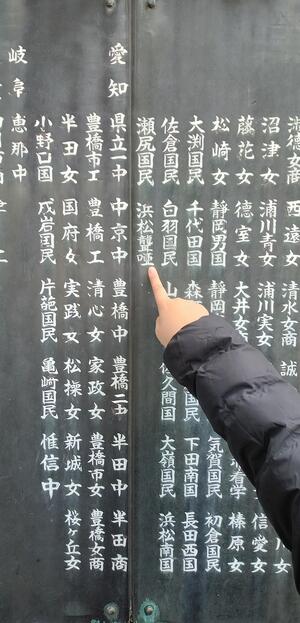 徳女商 西遠女 清水女商 誠 川女
沼津女 浦川青女 浦川実女 信愛女
藤花女 徳 女 大井女商 着学 榛原女
松崎女 静岡男国 静岡 気賀国民 初倉国民
大渕国民 千代田国 森 下田南国 長田西国
佐倉国民 白羽国民 山 久間国 大嶺国民 浜松南国
瀬尻国民 浜松聾唖
愛知 県立一中 中京中 豊橋中 豊橋二中 半田中 半田商
豊橋市工 豊橋工 清心女 家政女 豊橋市女 豊橋女商
半田女 国府女 実践女 松操女 新城女 桜ヶ丘女
小野口国 成岩国民 片葩国民 亀崎国民 惟信中
岐阜 恵那中